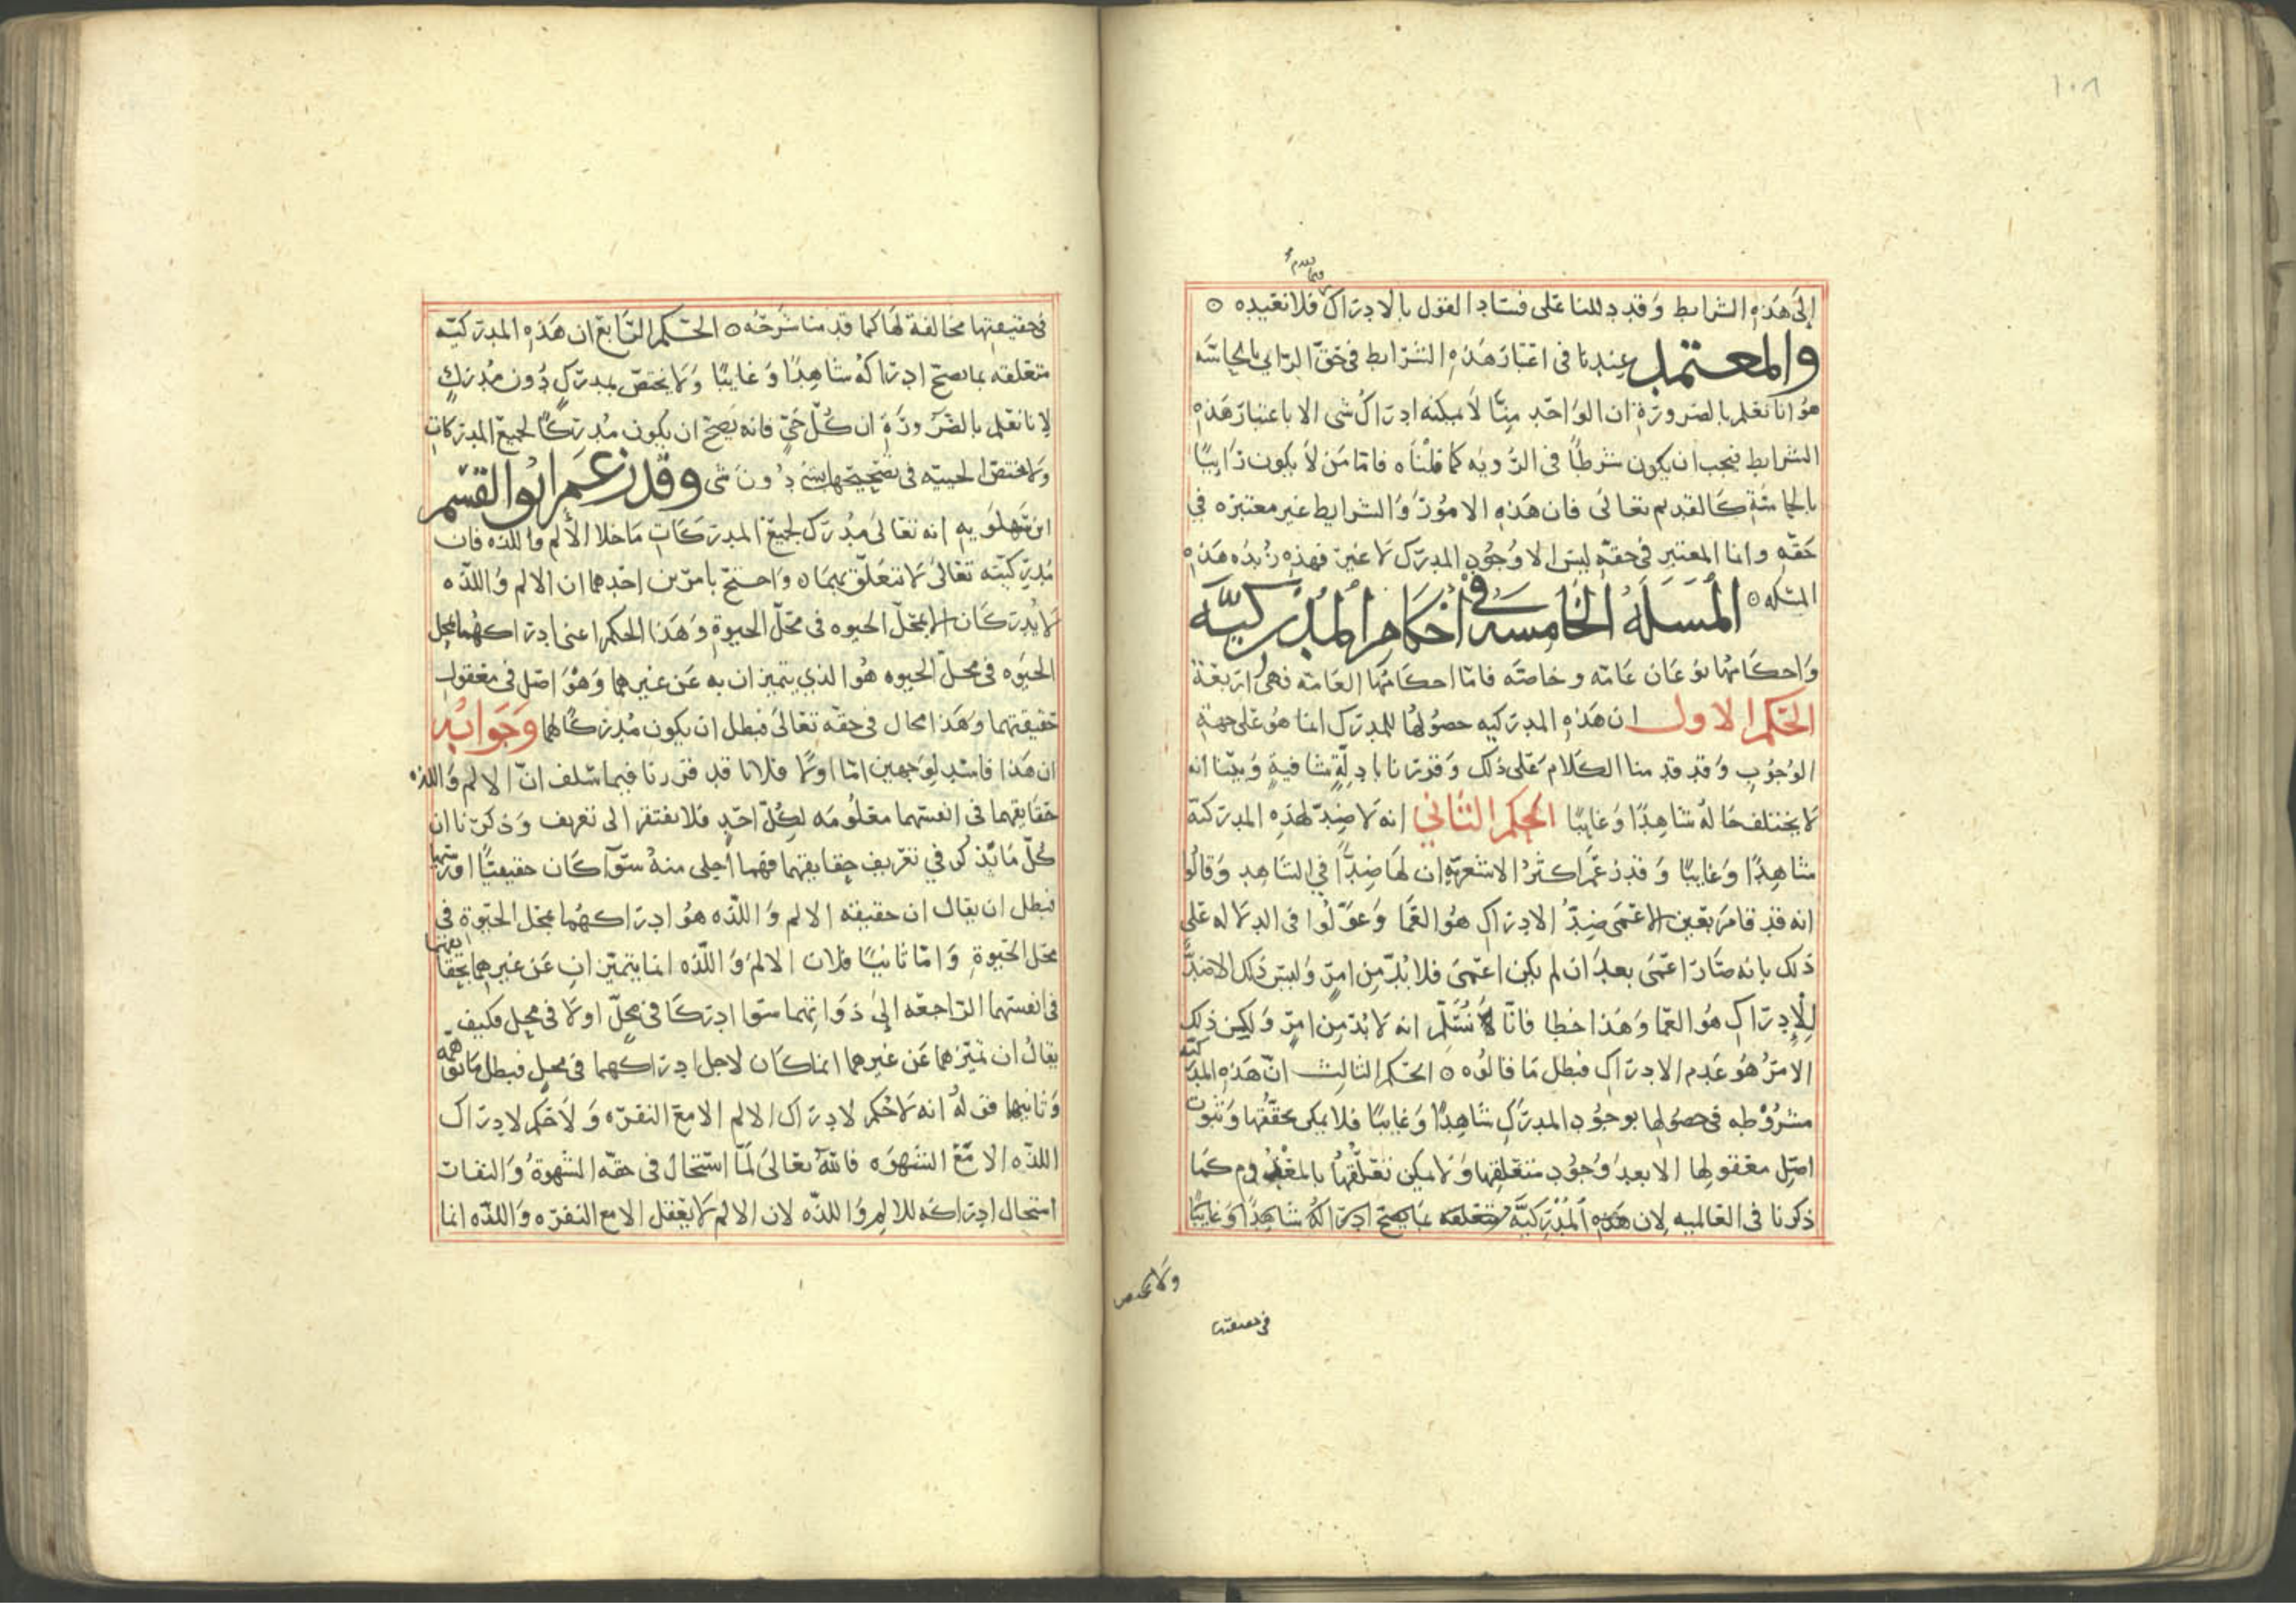 ١٠٨
فيما تقدم
إلى هذه الشرايط وقد دللنا على فساد القول بالادراك فلا نعيده ۝
والمعتمد عندنا فى اعتبار هذه الشرايط فى حق الرايي بالحاسه
هو انا نعلم بالضرورة ان الواحد منا لا يمكنه ادراك شى الا باعتبار هذه
الشرايط فيجب ان يكون شرطًا فى الرويه كما قلناه فاما من لا يكون رَاييًا
بالحاسّةِ كالقديم تعالى فان هذه الامور والشرايط غير معتبره في
حقه وانما المعتبر فى حقه ليس الا وجود المدرك لا غير فهذه زبده هذه
المسله ۝ المسلة الخامسه في احكام المدركيّه
وَاحكامها نوعَان عَامّه وخاصّه فامّا احكامها العَامّه فهى اربعَة
الحكم الاول ان هذه المدركيه حصُولها للمدرك انما هو على جهة
الوجوب وَقد قدمنا الكلام على ذلك وَقررنا بادلّةٍ شافيةٍ وَبيّنا انه
لا يختلف حاله شاهدًا وَغايبًا الحكم الثاني انه لا ضِدّ لهذه المدركيّة
شاهِدًا وَغايبًا وَقد زعَم اكثرُ الاشعريّه ان لها ضِدًّا في الشاهد وَقالُوا
انه قد قام بعَين الاعمَى ضِدّ الادراك هُو العَمَا وَعوّلُوا فى الدلاله على
ذلك بانه صَار اعمَى بعدَ ان لم يكن اعمَى فلا بُدّ من امرٍ وَليسَ ذلك الا ضِدًّا
لِلإدراك هُو العمَا وَهَذا خطا فانّا نُسَلّم انه لا بُدّ من امرٍ وَلكن ذلك
الامرُ هُو عَدم الادراك فبطل مَا قالُوه ۝ الحكم الثالث انّ هَذه المدركيّه
مشرُوطه فى حصُولها بوجُود المدرَكِ شَاهدًا وَغايبًا فلا يمكن تحقّقُها وَثبوت
اصل معقولها الا بعدَ وُجُود متعلقِها وَلا يمكن تعَلّقُها بالمعْدُوم كمَا
ذكرنا فى العَالميه لان هَذه المُدْرِكيَّه متعلقه بما يصح ادراكه شاهِدًا وَغايبًا
ولا يختص
فى حقيقتها
فى حقيقتِها مخالفة لها كما قدمنا شرحُه ۝ الحكم الرّابع ان هَذه المدركيّه
متعَلقه بما يصحّ ادرَاكهُ شاهِدًا وَغايبًا وَلا يختصّ بمدرَكٍ دُون مُدرَكٍ
لانا نعلم بالضّرورَةِ ان كُلّ حَيٍّ فانه يصحّ ان يكون مُدركًا لجميع المدركات
وَلا تختصّ الحييّه فى تصحِيحها بشىٍ دُونَ شى وقد زعم ابو القسم
ابن سَهلَويهِ انه تعَالى مُدرَك لجميع المدرَكاتِ مَاخلا الألم وَاللذّه فان
مُدركيّته تعَالى لا تتعَلّق بهمَا ۝ وَاحتجّ بامرَين احَدهما ان الالم وَاللذّه
لا يُدرَكان الا بمحَلّ الحيوه فى محَلّ الحيوةِ وَهَذا الحكم اعنى ادرَاكهُما بمحل
الحيَوه فى محلّ الحيوه هُو الذي يتميزان به عَن غيرهما وَهُوَ اصَل فى معقول
حقيقتهما وَهَذا محال فى حقّه تعَالى فبطل ان يكون مُدرَكًا لهما وَجَوابُه
ان هَذا فاسد لوَجهين امّا اولا فلانا قد قرّرنا فيما سَلف انّ الالم وَاللذه
حقَايقهما فى انفسهما معلُومَه لكلّ احَدٍ فلا يفتقر الى تعريف وَذكرنا ان
كُلّ مَا يُذكر في تعريف حقايقهما فهما أجلى منهُ سَوآ كَان حقيقيًّا او رَسميا
فبطل ان يقال ان حقيقة الالم وَاللّذه هو ادرَاكهُما بمحَل الحيوةِ فى
محَل الحيوةِ وَامّا ثانيًا فلان الالمَ وَاللّذه انما يتميّزان عَن غيرهما بحقايقهما
فى انفسهما الرّاجعَه إلى ذوَاتهما سَوا ادرَكا فى محَلّ او لا فى محل فكيف
يقالُ ان تميّزهما عَن غيرهما انما كَان لاجل ادرَاكهما فى محلٍ فبطل مَا توهّمه
وَثانيهما قولُه انه لا حُكم لادرَاك الالم الا مَعَ النفره وَلا حَكم لادرَاك
اللذّه الا مَعَ الشهوَه فاللّهُ تعَالى لَمّا استحَالَ فى حقّه الشهوةُ وَالنفار
استحال ادرَاكه للالمِ وَاللذّه لان الالم لا يعقل الا مع النفره وَاللّذه انما